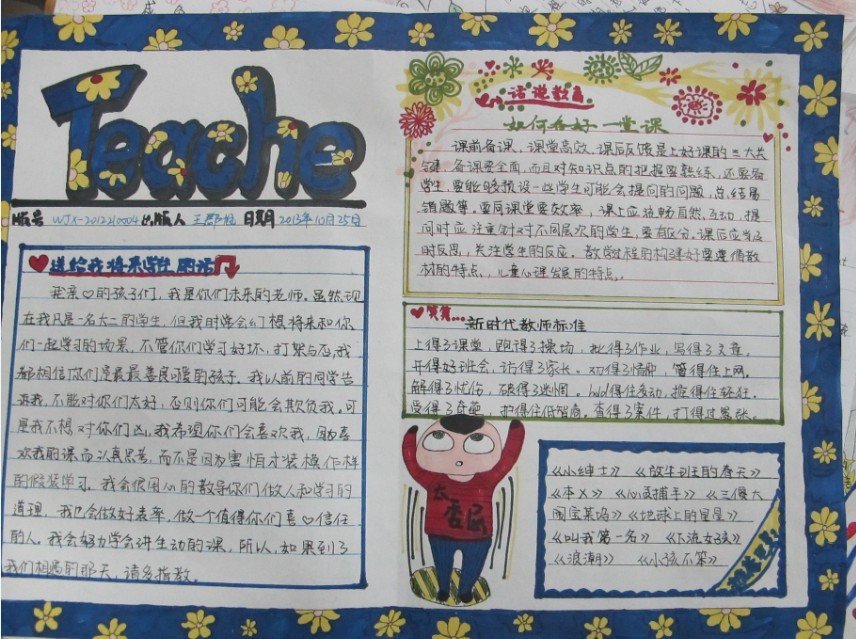 Teache
版号 WJX-2012210004 出版人 王郡妮 日期 2013年10月25日
送给我将来学生的话
我亲♡的孩子们，我是你们未来的老师。虽然现
在我只是一名大二的学生，但我时常会幻想将来和你
们一起学习的场景，不管你们学习好坏，打架与否，我
都相信你们是最最善良可爱的孩子。我以前的同学告
诉我，不能对你们太好，否则你们可能会欺负我。可
是我不想对你们凶，我希望你们会喜欢我，因为喜
欢我的课而认真思考，而不是因为害怕才装模作样
的假装学习。我会很用心的教导你们做人和学习的
道理，我也会做好表率，做一个值得你们喜♡信任
的人。我会努力学会讲生动的课，所以，如果到了
我们相遇的那天，请多指教。
话说教育
如何上好一堂课
课前备课，课堂高效，课后反馈是上好课的三大关
键。备课要全面，而且对知识点的把握要熟练，还要备
学生，要能够预设一些学生可能会提问的问题，总结易
错题等。要同课堂要效率，课上应流畅自然，互动，提
问时应注意针对不同层次的学生，要有区分。课后应当及
时反思，关注学生的反应。教学过程的构建好要遵循教
材的特点，儿童心理发展的特点。
笑笑...
新时代教师标准
上得了课堂，跑得了操场，批得了作业，写得了文章，
开得好班会，访得了家长，劝得了情种，管得住上网，
解得了忧伤，破得了迷惘，hold得住多动，控得住轻狂，
受得了奇葩，护得住低智商，查得了案件，打得过嚣张。
太委屈
《小绅士》《放牛班的春天》
《本X》《心灵捕手》《三傻大
闹宝莱坞》《地球上的星星》
《叫我第一名》《下流女孩》
《浪潮》《小孩不笨》